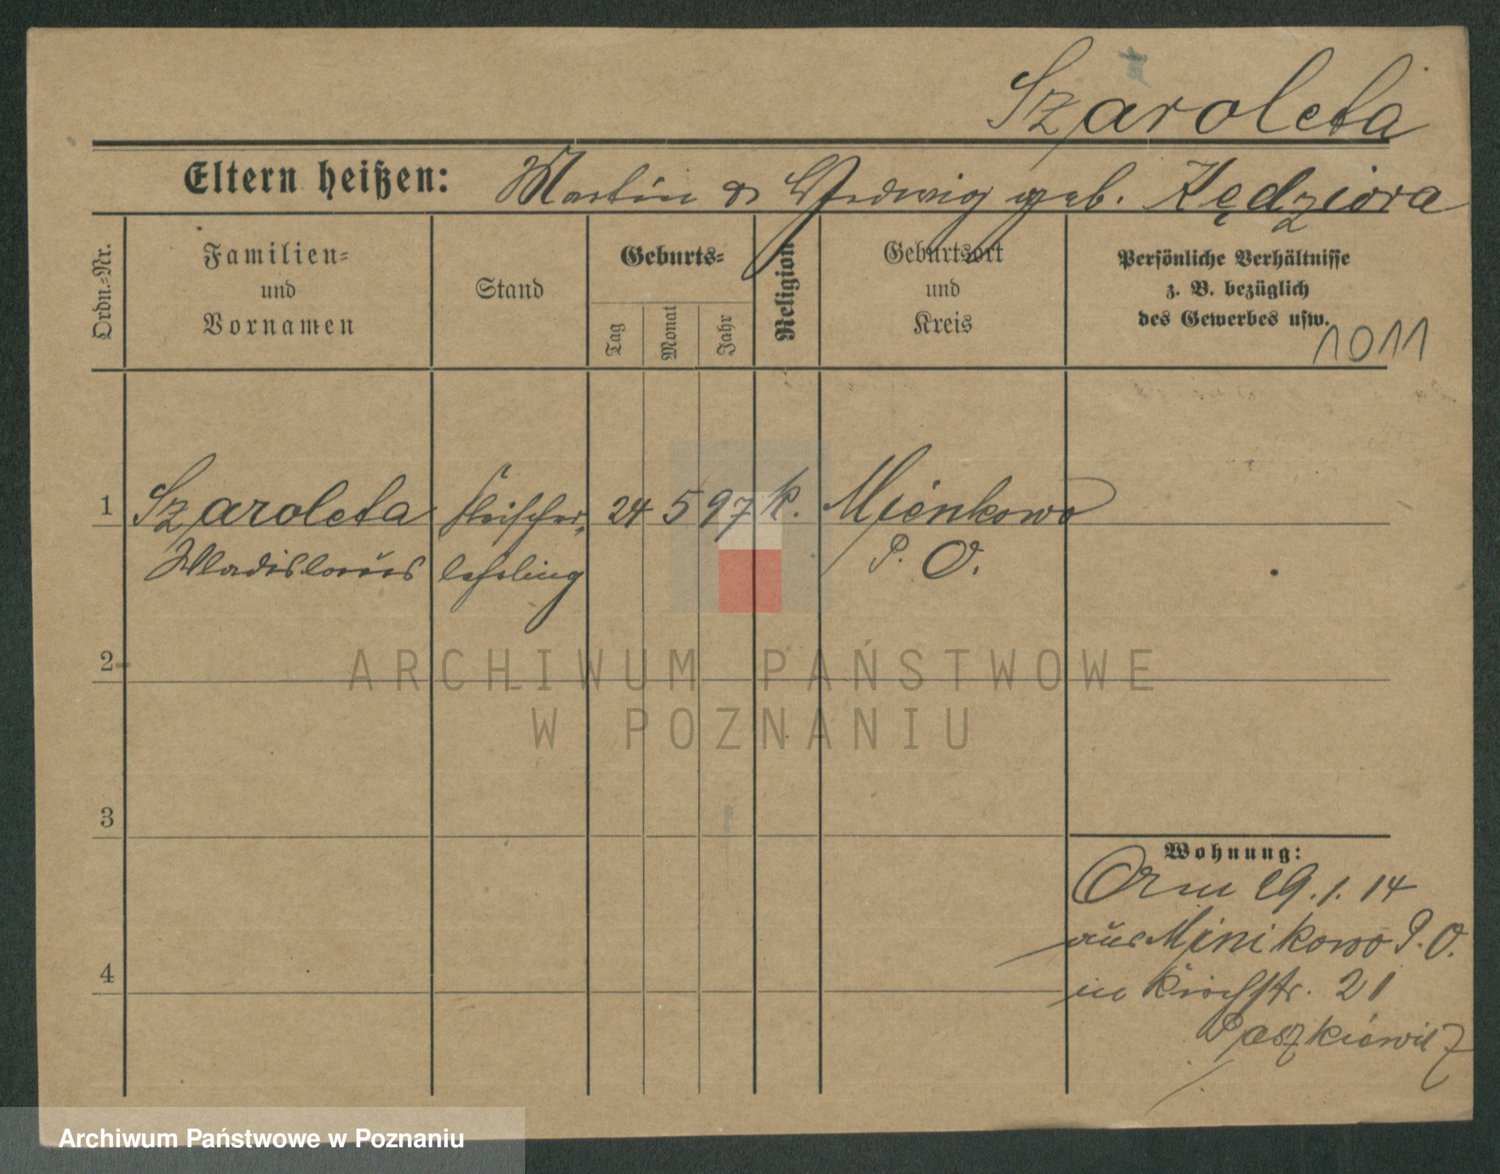 Szaroleta
Eltern heißen: Martin & Hedwig geb. Kędziora
Ordn.-Nr.
Familien-
und
Vornamen
Stand
Geburts-
Tag
Monat
Jahr
Religion
Geburtsort
und
Kreis
Persönliche Verhältnisse
z. B. bezüglich
des Gewerbes usw.
1011
1 Szaroleta Fleischer- 24 5 97 k. Mienkowo
Wladislaus lehrling P. O.
2
3
4
Wohnung:
Am 29.1.14
aus Minikowo P. O.
in Kirchstr. 21
Paszkiewicz
ARCHIWUM PAŃSTWOWE
W POZNANIU
Archiwum Państwowe w Poznaniu